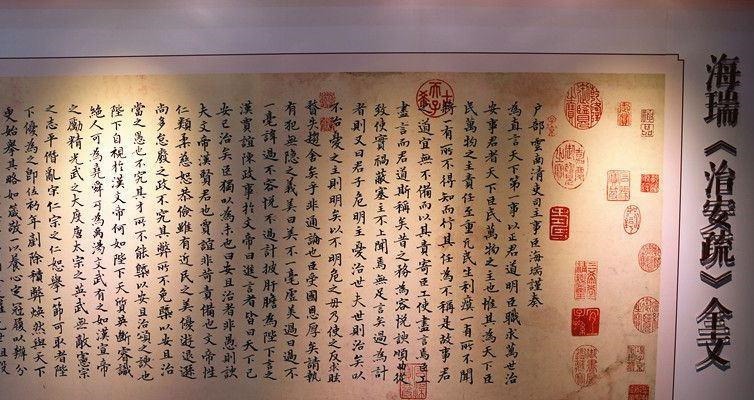 海瑞《治安疏》全文
户部雲南清吏司主事臣海瑞謹奏
為直言天下第一事以正君道明臣職求萬世治
安事君者天下臣民萬物之主也惟其為天下臣
民萬物之主責任至重凡民生利瘼一有所不聞
將一有所不得知而行其任為不稱是故事君
之道宜無不備而以其責寄臣工使盡言焉臣工
盡言而君道斯稱矣昔之務為容悅諛順曲從
致使實禍蔽塞主上不聞焉無足言矣過為計
者則又曰君子危明主憂治世夫世則治矣以
不治憂之主則明矣以不明危之毋乃使之反求眩
瞀失趨舍矣乎非通論也臣受國恩厚矣請執
有犯無隱之義美曰美不一毫虛美過曰過不
一毫諱過不容悅不過計披肝膽為陛下言之
漢賈誼陳政事於文帝曰進言者皆曰天下已
安已治矣臣獨以為未也曰安且治者非愚則諛
夫文帝漢賢君也賈誼非苛責備也文帝性
仁類柔慈恕恭儉雖有近民之美優游退遜
尚多怠廢之政不究其弊所不免槩以安且治
當之愚也不究其才所不能槩以安且治頌之諛也
陛下自視於漢文帝何如陛下天質英斷睿識
絕人可為堯舜可為禹湯文武下之如漢宣帝
之勵精光武之大度唐太宗之英武無敵憲宗
之志平僭亂宋仁宗之仁恕舉一節可取者陛
下優為之即位初年剷除積弊煥然與天下
更始舉其略如箴敬一以養心定冠履以辨分